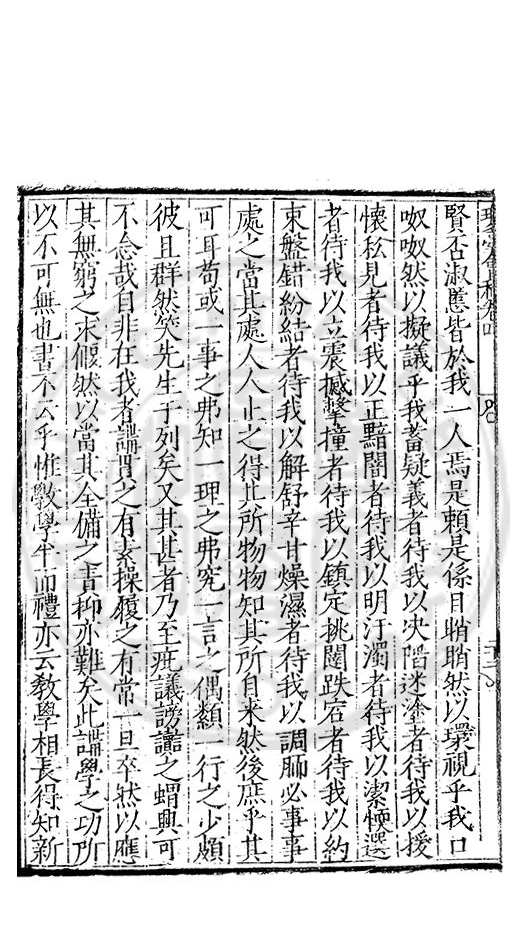 賢否淑慝皆於我一人焉是賴是係目睄睄然以環視乎我口
呶呶然以擬議乎我蓄疑義者待我以决陷迷塗者待我以援
懷私見者待我以正黯闇者待我以明汙濁者待我以潔愞選
者待我以立震撼擊撞者待我以鎮定挑闥跌宕者待我以約
束盤錯紛結者待我以解舒辛甘燥濕者待我以調胹必事事
處之當其處人人止之得其所物物知其所自来然後庶乎其
可耳苟或一事之弗知一理之弗究一言之偶纇一行之少頗
彼且群然笑先生于列矣又其甚者乃至疵議謗讟之蝟興可
不念哉自非在我者講貫之有素操履之有常一旦卒然以應
其無窮之求偃然以當其全備之責抑亦難矣此講學之功所
以不可無也書不云乎惟斆學半而禮亦云教學相長得知新